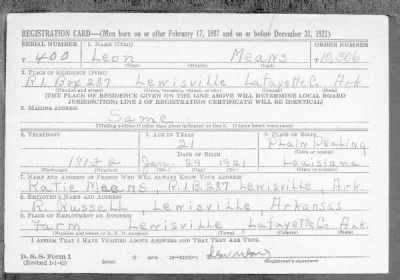 REGISTRATION CARD—(Men born on or after February 17, 1897 and on or before December 31, 1921)
SERIAL NUMBER 1. NAME (Print) ORDER NUMBER
T 400 Leon Means T 10,306
(First) (Middle) (Last)
2. PLACE OF RESIDENCE (Print)
R.1. Box 287 Lewisville Lafayette Co. Ark.
(Number and street) (Town, township, village, or city) (County) (State)
[THE PLACE OF RESIDENCE GIVEN ON THE LINE ABOVE WILL DETERMINE LOCAL BOARD
JURISDICTION; LINE 2 OF REGISTRATION CERTIFICATE WILL BE IDENTICAL]
3. MAILING ADDRESS
Same
[Mailing address if other than place indicated on line 2. If same insert word same]
4. TELEPHONE 5. AGE IN YEARS 6. PLACE OF BIRTH
21 Plain Dealing
DATE OF BIRTH (Town or county)
Jan. 29 1921 Louisiana
(Exchange) (Number) (Mo.) (Day) (Yr.) (State or country)
7. NAME AND ADDRESS OF PERSON WHO WILL ALWAYS KNOW YOUR ADDRESS
Katie Means, R.1. B.287 Lewisville, Ark.
8. EMPLOYER'S NAME AND ADDRESS
R. Russell, Lewisville, Arkansas
9. PLACE OF EMPLOYMENT OR BUSINESS
Farm Lewisville Lafayette Co. Ark.
(Number and street or R. F. D. number) (Town) (County) (State)
I AFFIRM THAT I HAVE VERIFIED ABOVE ANSWERS AND THAT THEY ARE TRUE.
D. S. S. Form 1
(Revised 1-1-42) (over) (Registrant's signature)